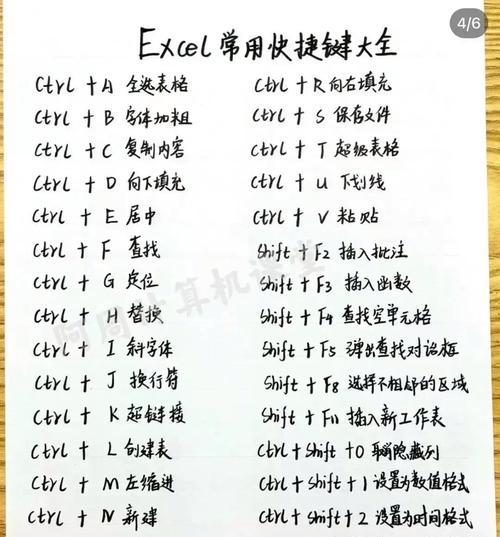 4/6
Excel常用快捷键大全
Ctrl + A 全选表格
Ctrl + B 字体加粗
Ctrl + C 复制内容
Ctrl + D 向下填充
Ctrl + E 居中
Ctrl + F 查找
Ctrl + G 定位
Ctrl + H 替换
Ctrl + I 斜字体
Ctrl + J 换行符
Ctrl + K 超链接
Ctrl + L 创建表
Ctrl + M 左缩进
Ctrl + N 新建
Ctrl + R 向右填充
Ctrl + S 保存文件
Ctrl + T 超级表格
Ctrl + U 下划线
Ctrl + V 粘贴
Shift + F2 插入批注
Shift + F3 插入函数
Shift + F4 查找空单元格
Shift + F5 弹出查找对话框
Shift + F8 选择不相邻的区域
Shift + F11 插入新工作表
Ctrl + Shift + 0 取消隐藏列
Ctrl + Shift + 1 设置为数值格式
Ctrl + Shift + 2 设置为时间格式
阿周计算机课堂